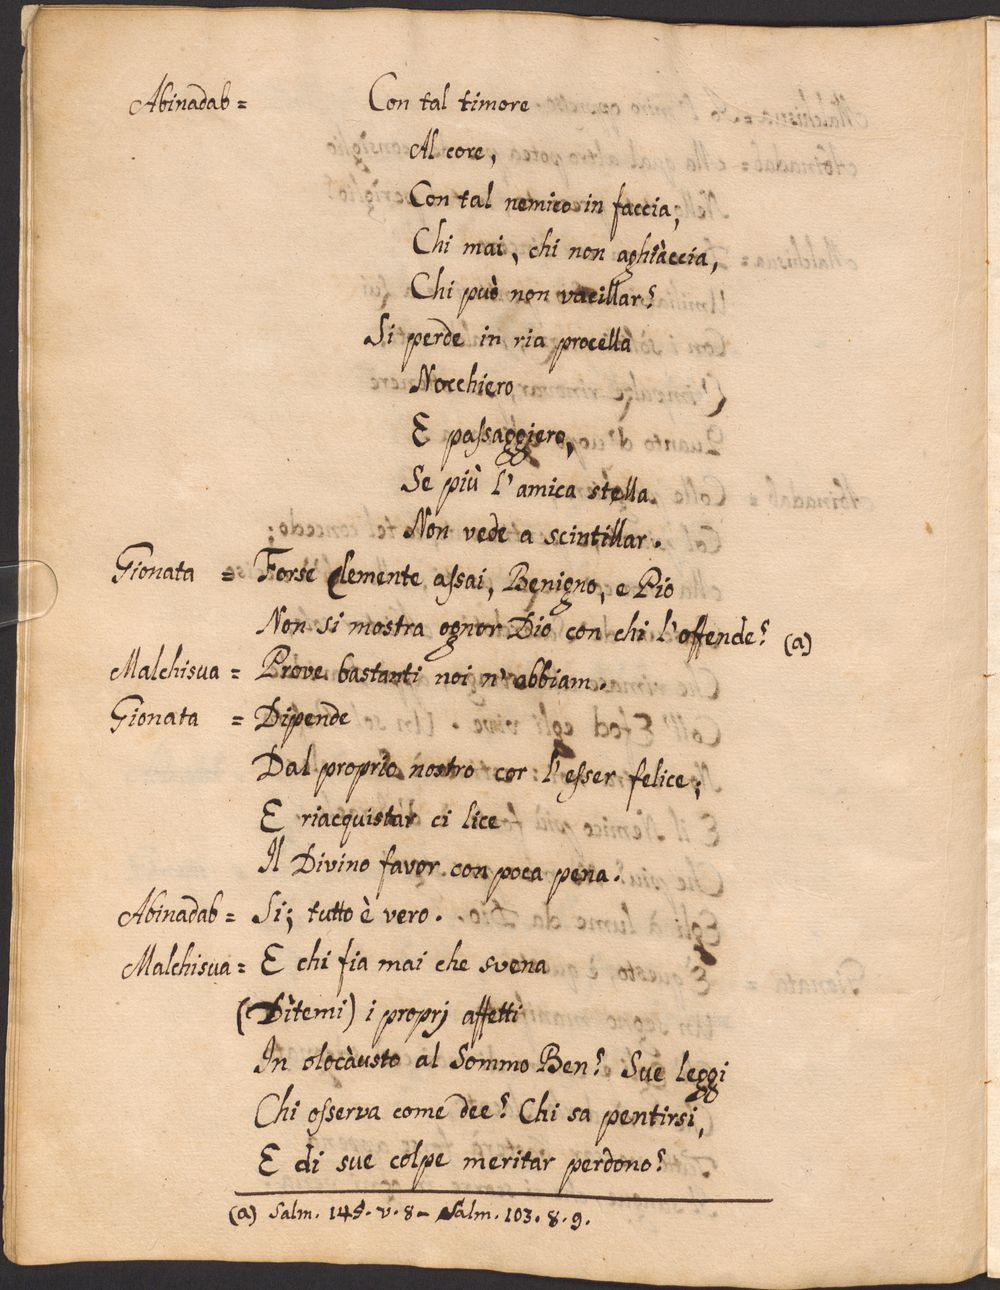 Abinadab = Con tal timore
Al core,
Con tal nemico in faccia,
Chi mai, chi non aghiàccia,
Chi può non vacillar?
Si perde in ria procella
Nocchiero
E paſsaggiero,
Se più l'amica stella
Non vede a scintillar.
Gionata = Forse Clemente aſsai, Benigno, e Pio
Non si mostra ognor Dio con chi l'offende? (a)
Malchisua = Prove bastanti noi n'abbiam.
Gionata = Dipende
Dal proprio nostro cor l'eſser felice;
E riacquistar ci lice
Il Divino favor con poca pena.
Abinadab = Si; tutto è vero.
Malchisua = E chi fia mai che svena
(Dìtemi) i proprj affetti
In olocàusto al Sommo Ben? Sue leggi
Chi oſserva come dee? Chi sa pentirsi,
E di sue colpe meritar perdono?
(a) Salm. 145. v. 8 - Salm. 103. 8. 9.